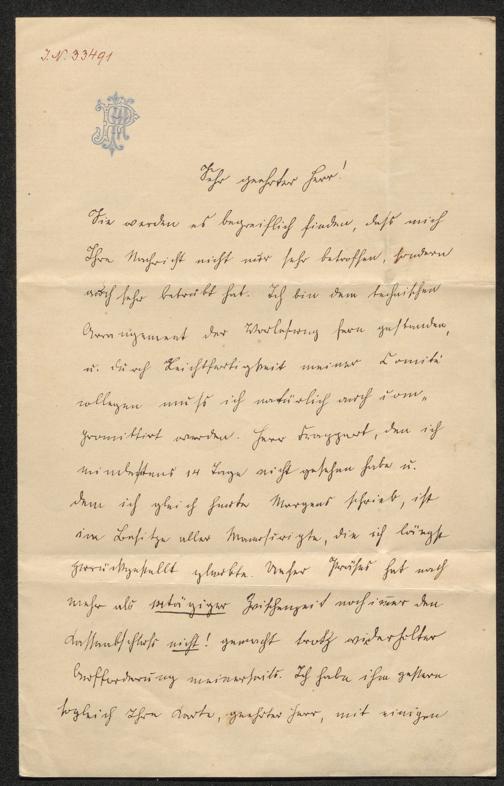 J.N. 33491
Sehr geehrter Herr!
Sie werden es begreiflich finden, daß mich
Ihre Nachricht nicht nur sehr betroffen, sondern
auch sehr betrübt hat. Ich bin dem technischen
Arrangement der Vorlesung fern gestanden,
u. durch Leichtfertigkeit meiner Comité
collegen muß ich natürlich auch com-
promittirt werden. Herr Frappart, den ich
mindestens 14 Tage nicht gesehen habe u.
dem ich gleich heute Morgens schrieb, ist
im Besitze aller Manuscripte, die ich längst
zurückgestellt glaubte. Unser Präses hat nach
mehr als Zwischenzeit noch immer den
Cassaabschluss nicht! gemacht trotz widerholter
Aufforderung meinerseits. Ich habe ihm gestern
sogleich Ihre Karte, geehrter Herr, mit einigen